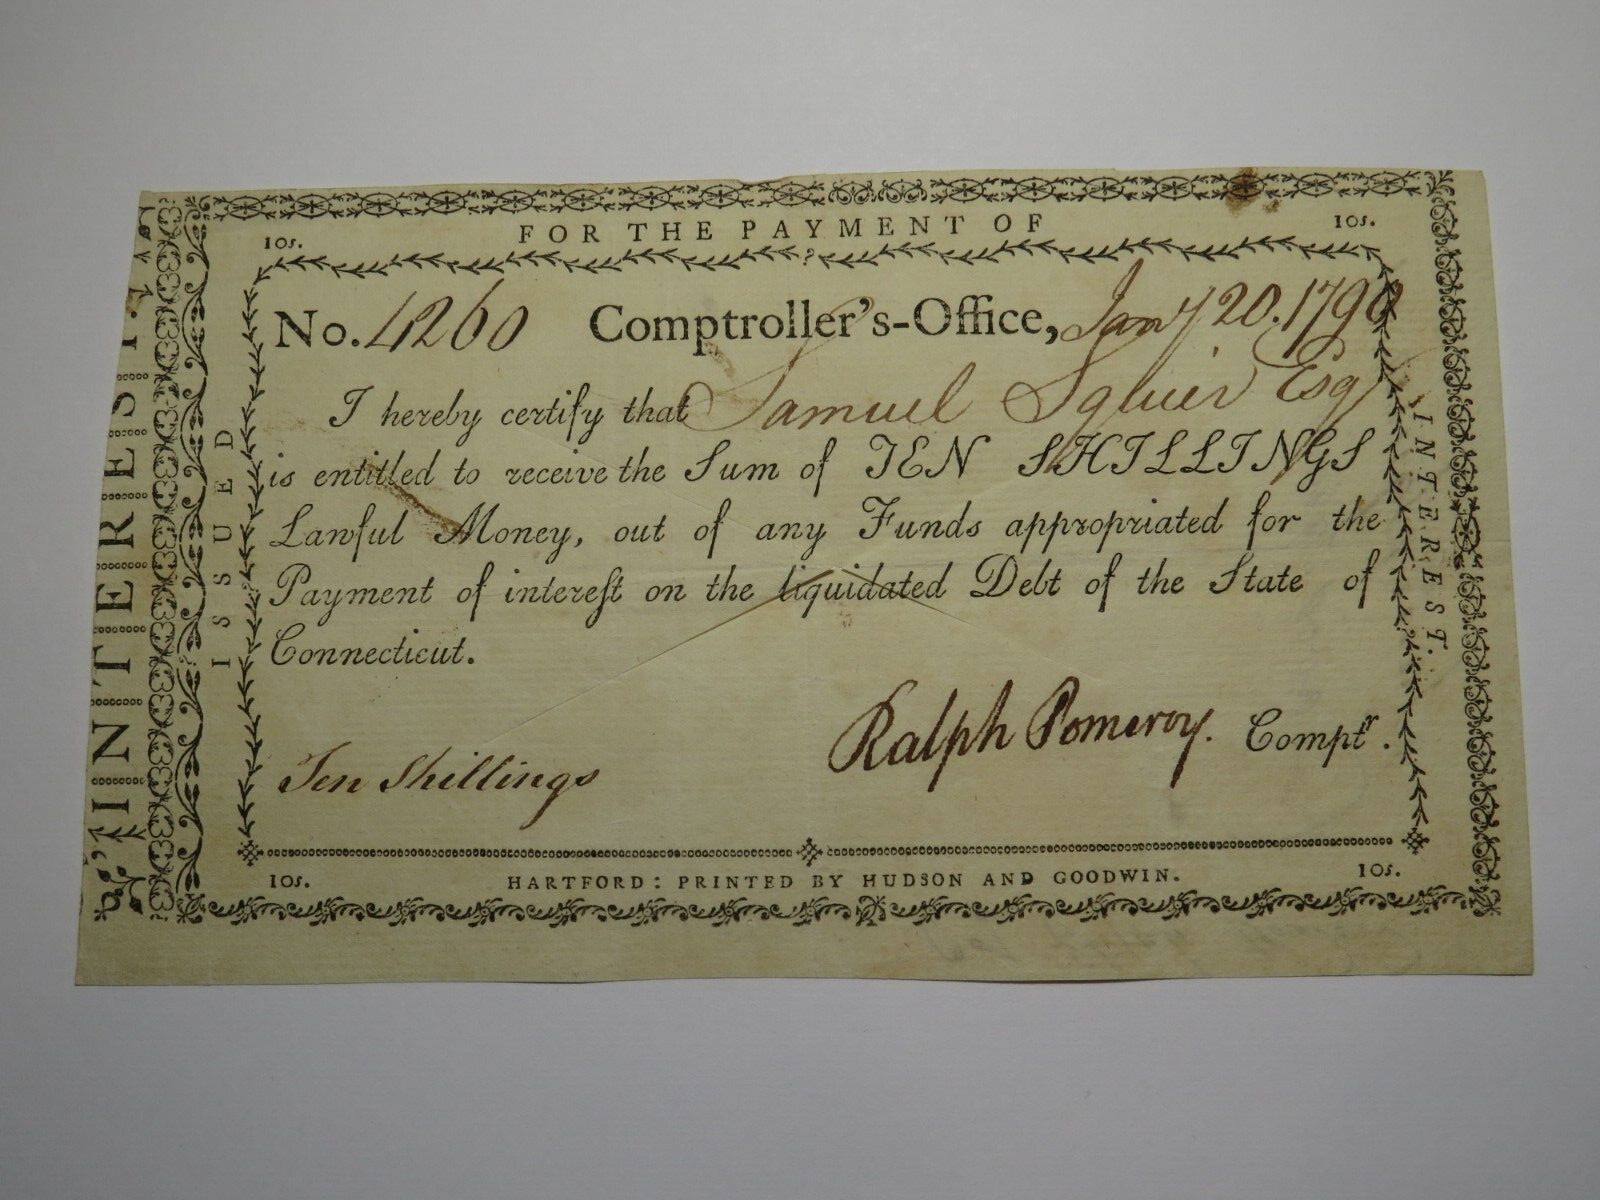 FOR THE PAYMENT OF
10s.
10s.
No. 4260 Comptroller's-Office, Jany 20. 1790
I hereby certify that Samuel Squier Esqr
is entitled to receive the Sum of TEN SHILLINGS
Lawful Money, out of any Funds appropriated for the
Payment of interest on the liquidated Debt of the State of
Connecticut.
Ralph Pomeroy. Comptr.
Ten Shillings
10s.
HARTFORD: PRINTED BY HUDSON AND GOODWIN.
10s.
ISSUED
INTEREST.
INTEREST.